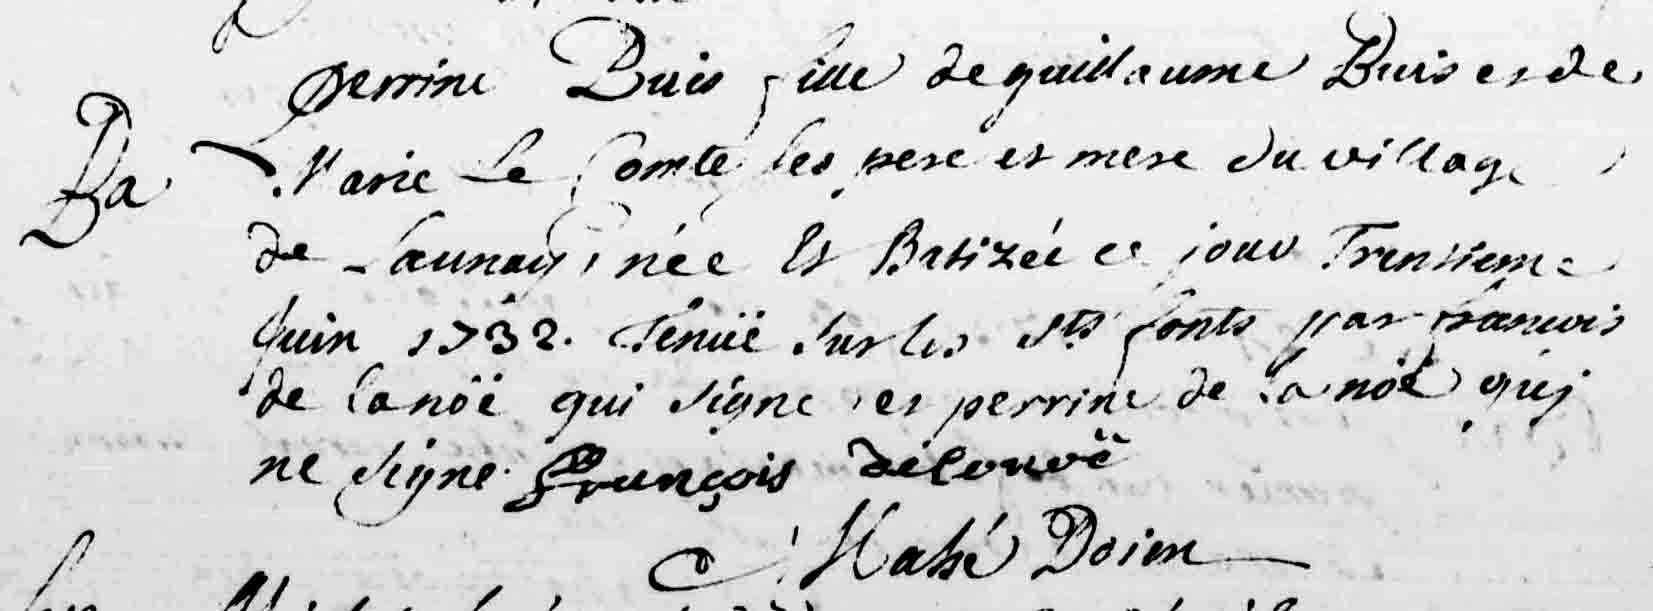 perrine Buis fille de guillaume Buis et de
Ba
Marie Le Comte ses pere et mere du village
de Launay, née Et Batizée ce jour Trentieme
Juin 1732. Tenuë sur les sts fonts par francois
de lanoë qui signe et perrine de lanoë quj
ne signe. François delanoë
Mahé Doien